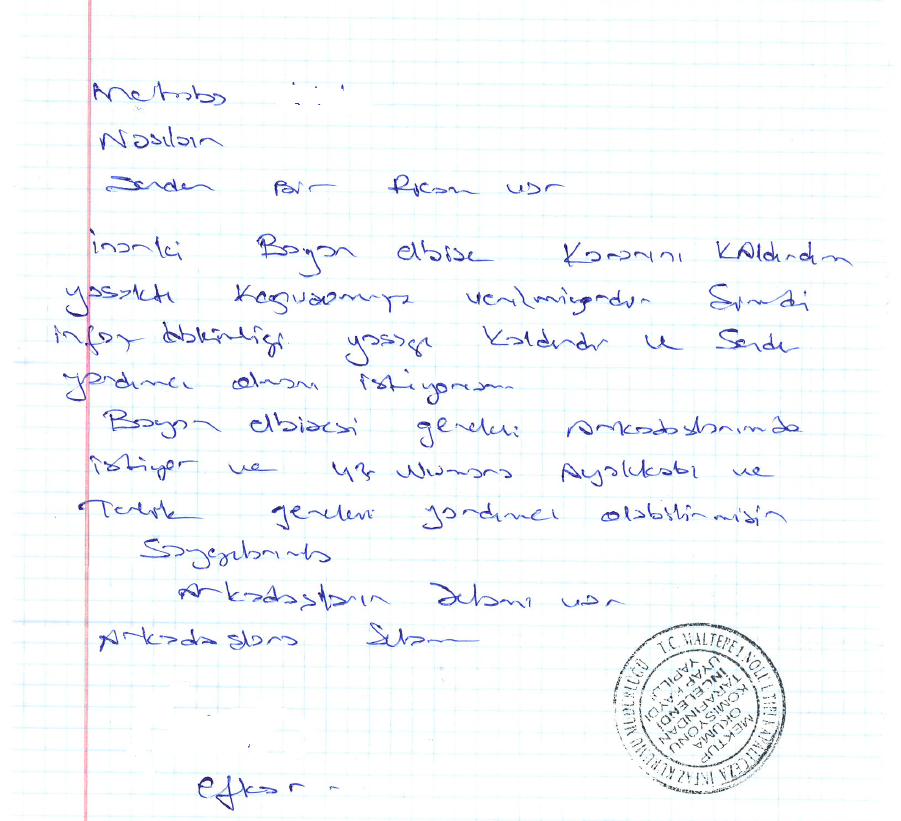 Merhaba
Nasılsın
Senden Bir Ricam var
inanki Bayan elbise Kararını KAldırdım
yasaktı Kaguşumuza verilmiyordu Şimdi
infaz Hakimliği yasağı Kaldırdı ve Senden
yardımcı olmanı istiyorum
Bayan elbisesi gerekli Arkadaşlarımda
istiyor ve 43 Numara Ayakkabı ve
Terlik gerekli yardımcı olabilirmisin
Saygılarımla
Arkadaşların Selamı var
Arkadaşlara Selam
efkar
T.C. MALTEPE 1 NOLU L TİPİ KAPALI CEZA İNFAZ KURUMU MÜDÜRLÜĞÜ
MEKTUP
OKUMA
KOMİSYONU
TARAFINDAN
İNCELENDİ
UYAP KAYDI
YAPILDI